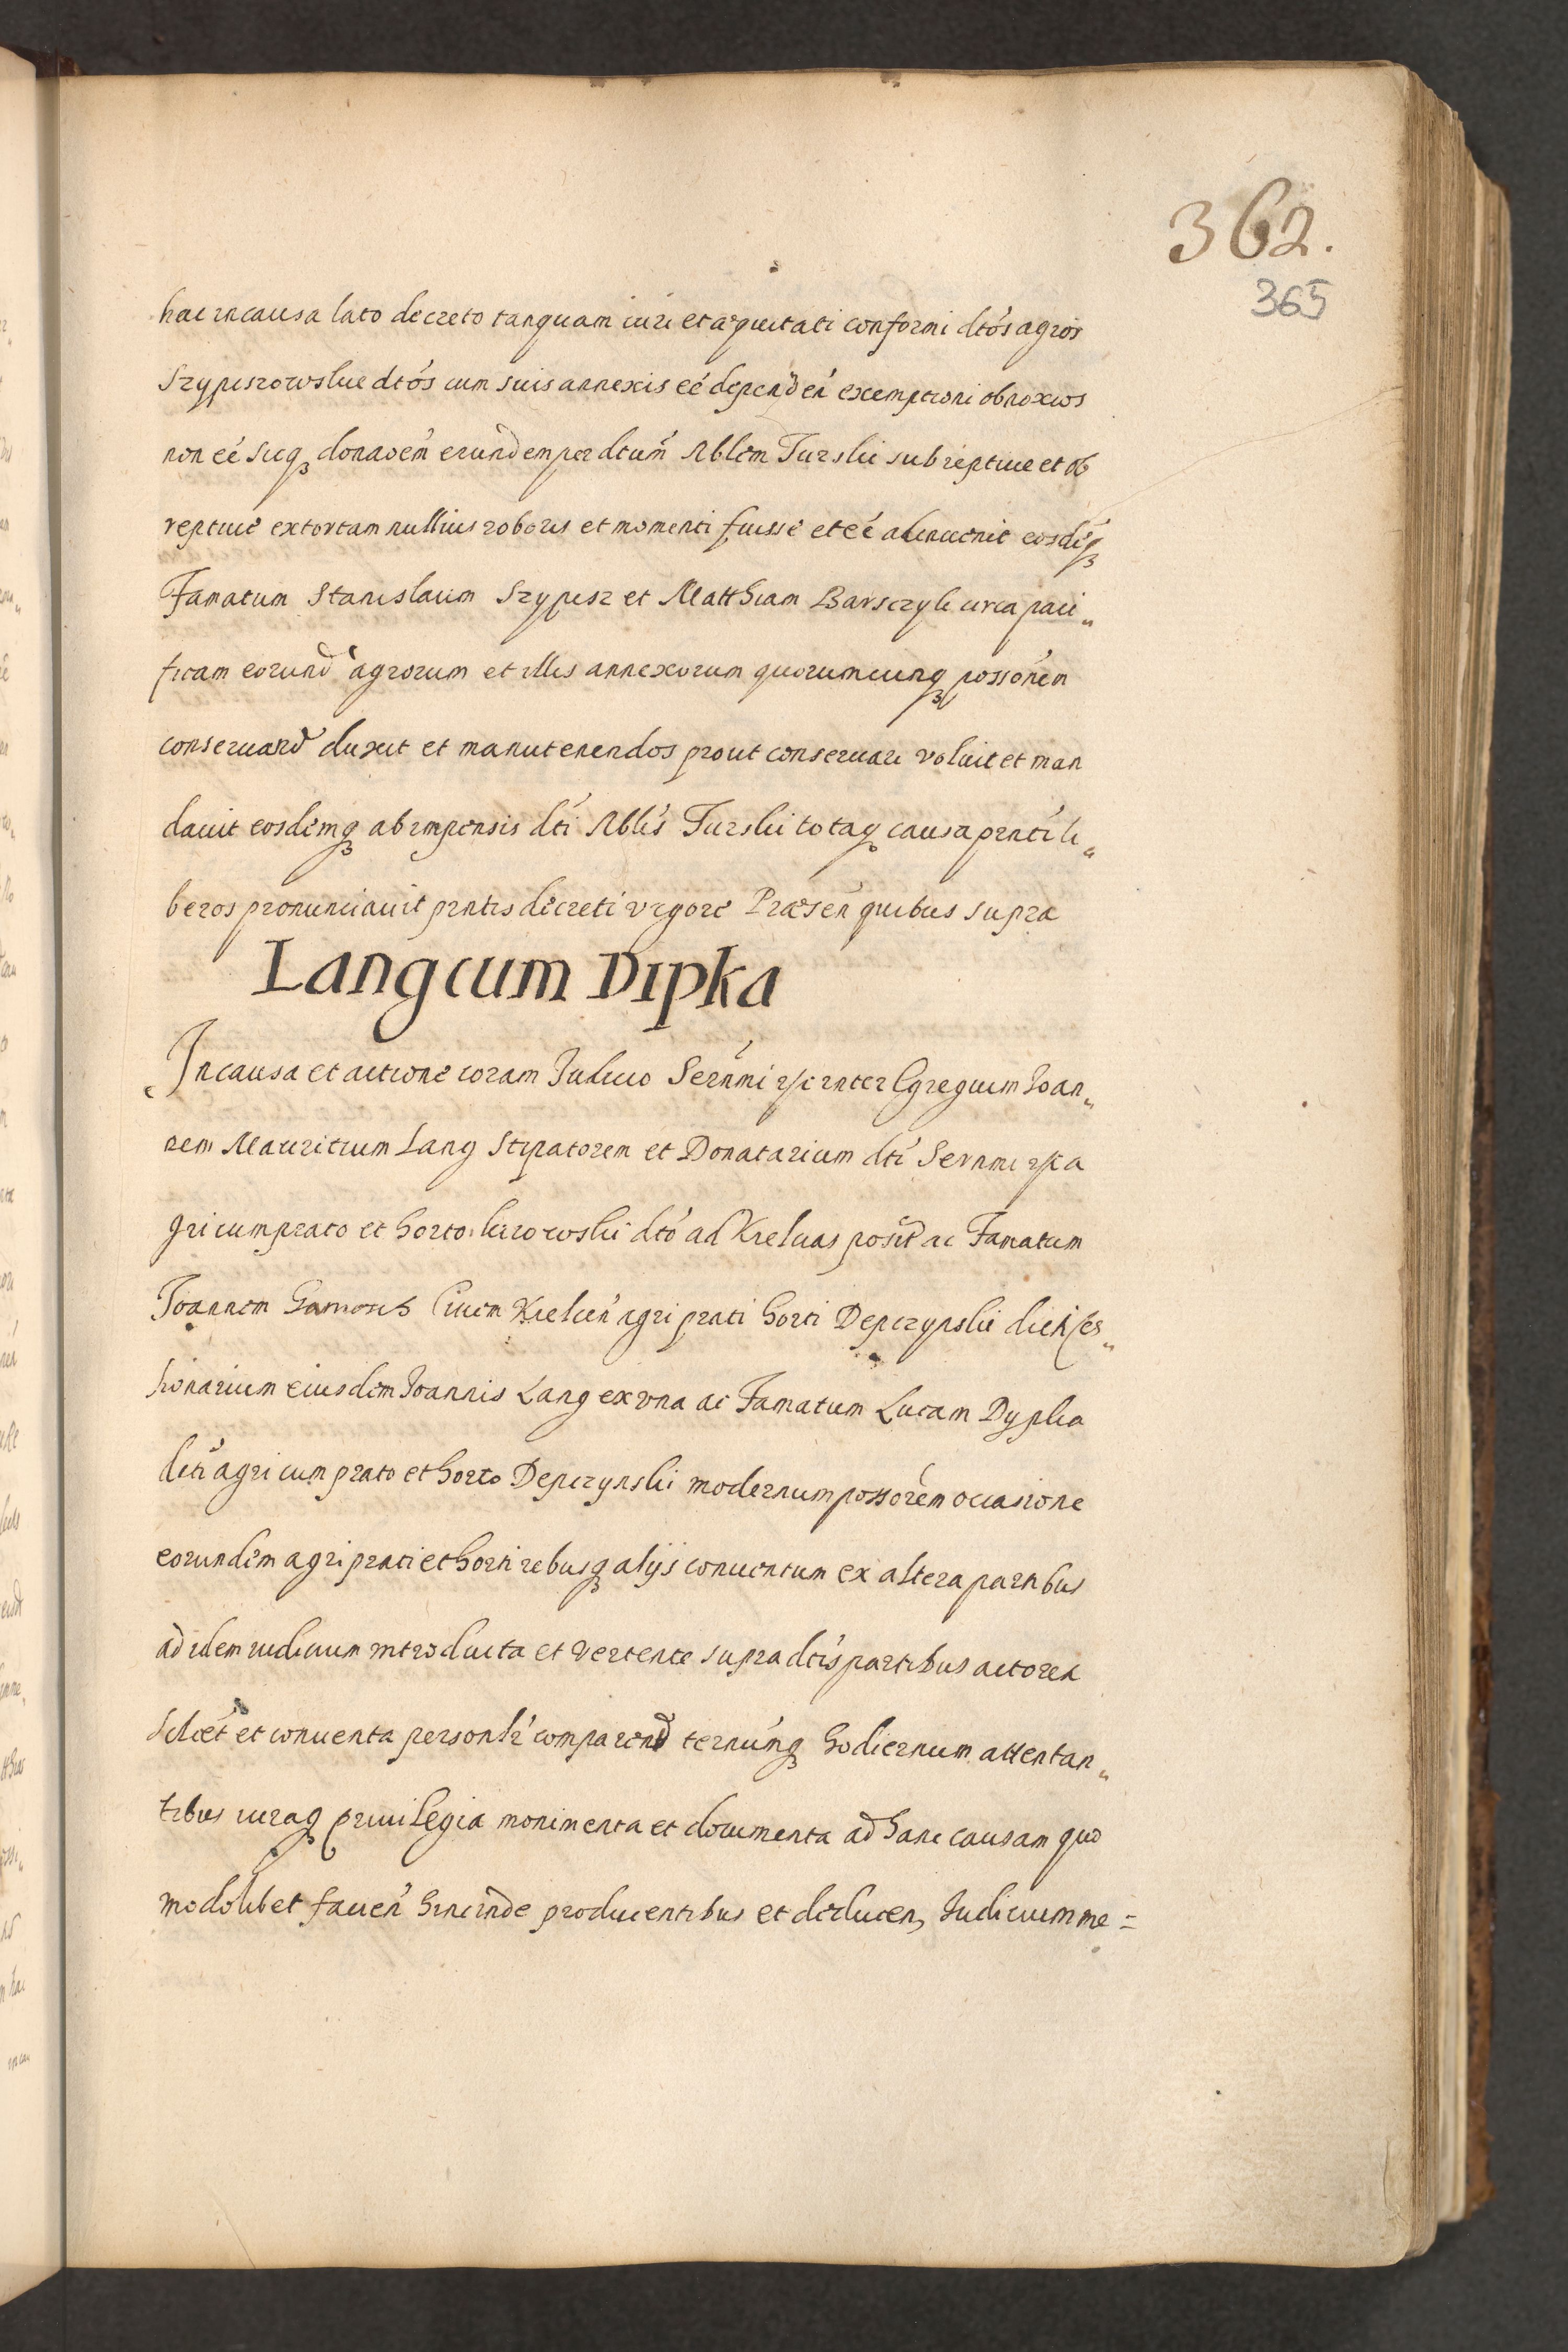 362.
365
hac in causa lato decreto tanquam iuri et aequitati conformi dtós agros
Szypiszowskie dtós cum suis annexis eé dependeń exemptioni obnoxios
non eé sicq3 donaōem̃ eorundem per dtum̃ Nblem Turski subreptiue et ob
reptiue extortam nullius roboris et momenti fuisse et eé adinuenit eosdéq3
Famatum Stanislaum Szypisz et Matthiam Barsczyk circa paci„
ficam eorund agrorum et illis annexorum quorumcunq3 possónem
conseruand duxit et manutenendos prout conseruari voluit et man
dauit eosdemq3 ab impensis dti Nblis Turski totaq causa prnti li„
beros pronunciauit prntis decreti vigore Praeseń quibus supra
Lang cum Dipka
In causa et actione coram Iudicio Sernmi rsi inter Egregium Ioan„
nem Mauritium Lang Stipatorem et Donatarium dti Sernmi rsi a
gri cum prato et horto kirowski dtó ad Kielcias posit ac Famatum
Ioannem Ciuem Kielceń agri prati horti Depczynski dicti ces„
sionarium eiusdem Ioannis Lang ex vna ac Famatum Lucam Dypka
dicti agri cum prato et horto Depczynski modernum possorem occasione
eorundem agri prati et horti rebusq3 alijs conuentum ex altera partibus
ad idem iudicium introducta et vertente supra dtis partibus actorea
scilcet et conuenta personlr comparend ternumq3 hodiernum attentan„
tibus iuraq3 priuilegia monimenta et documenta ad hanc causam quo
modolibet faueń hincinde producentibus et deducen, Iudicium me=